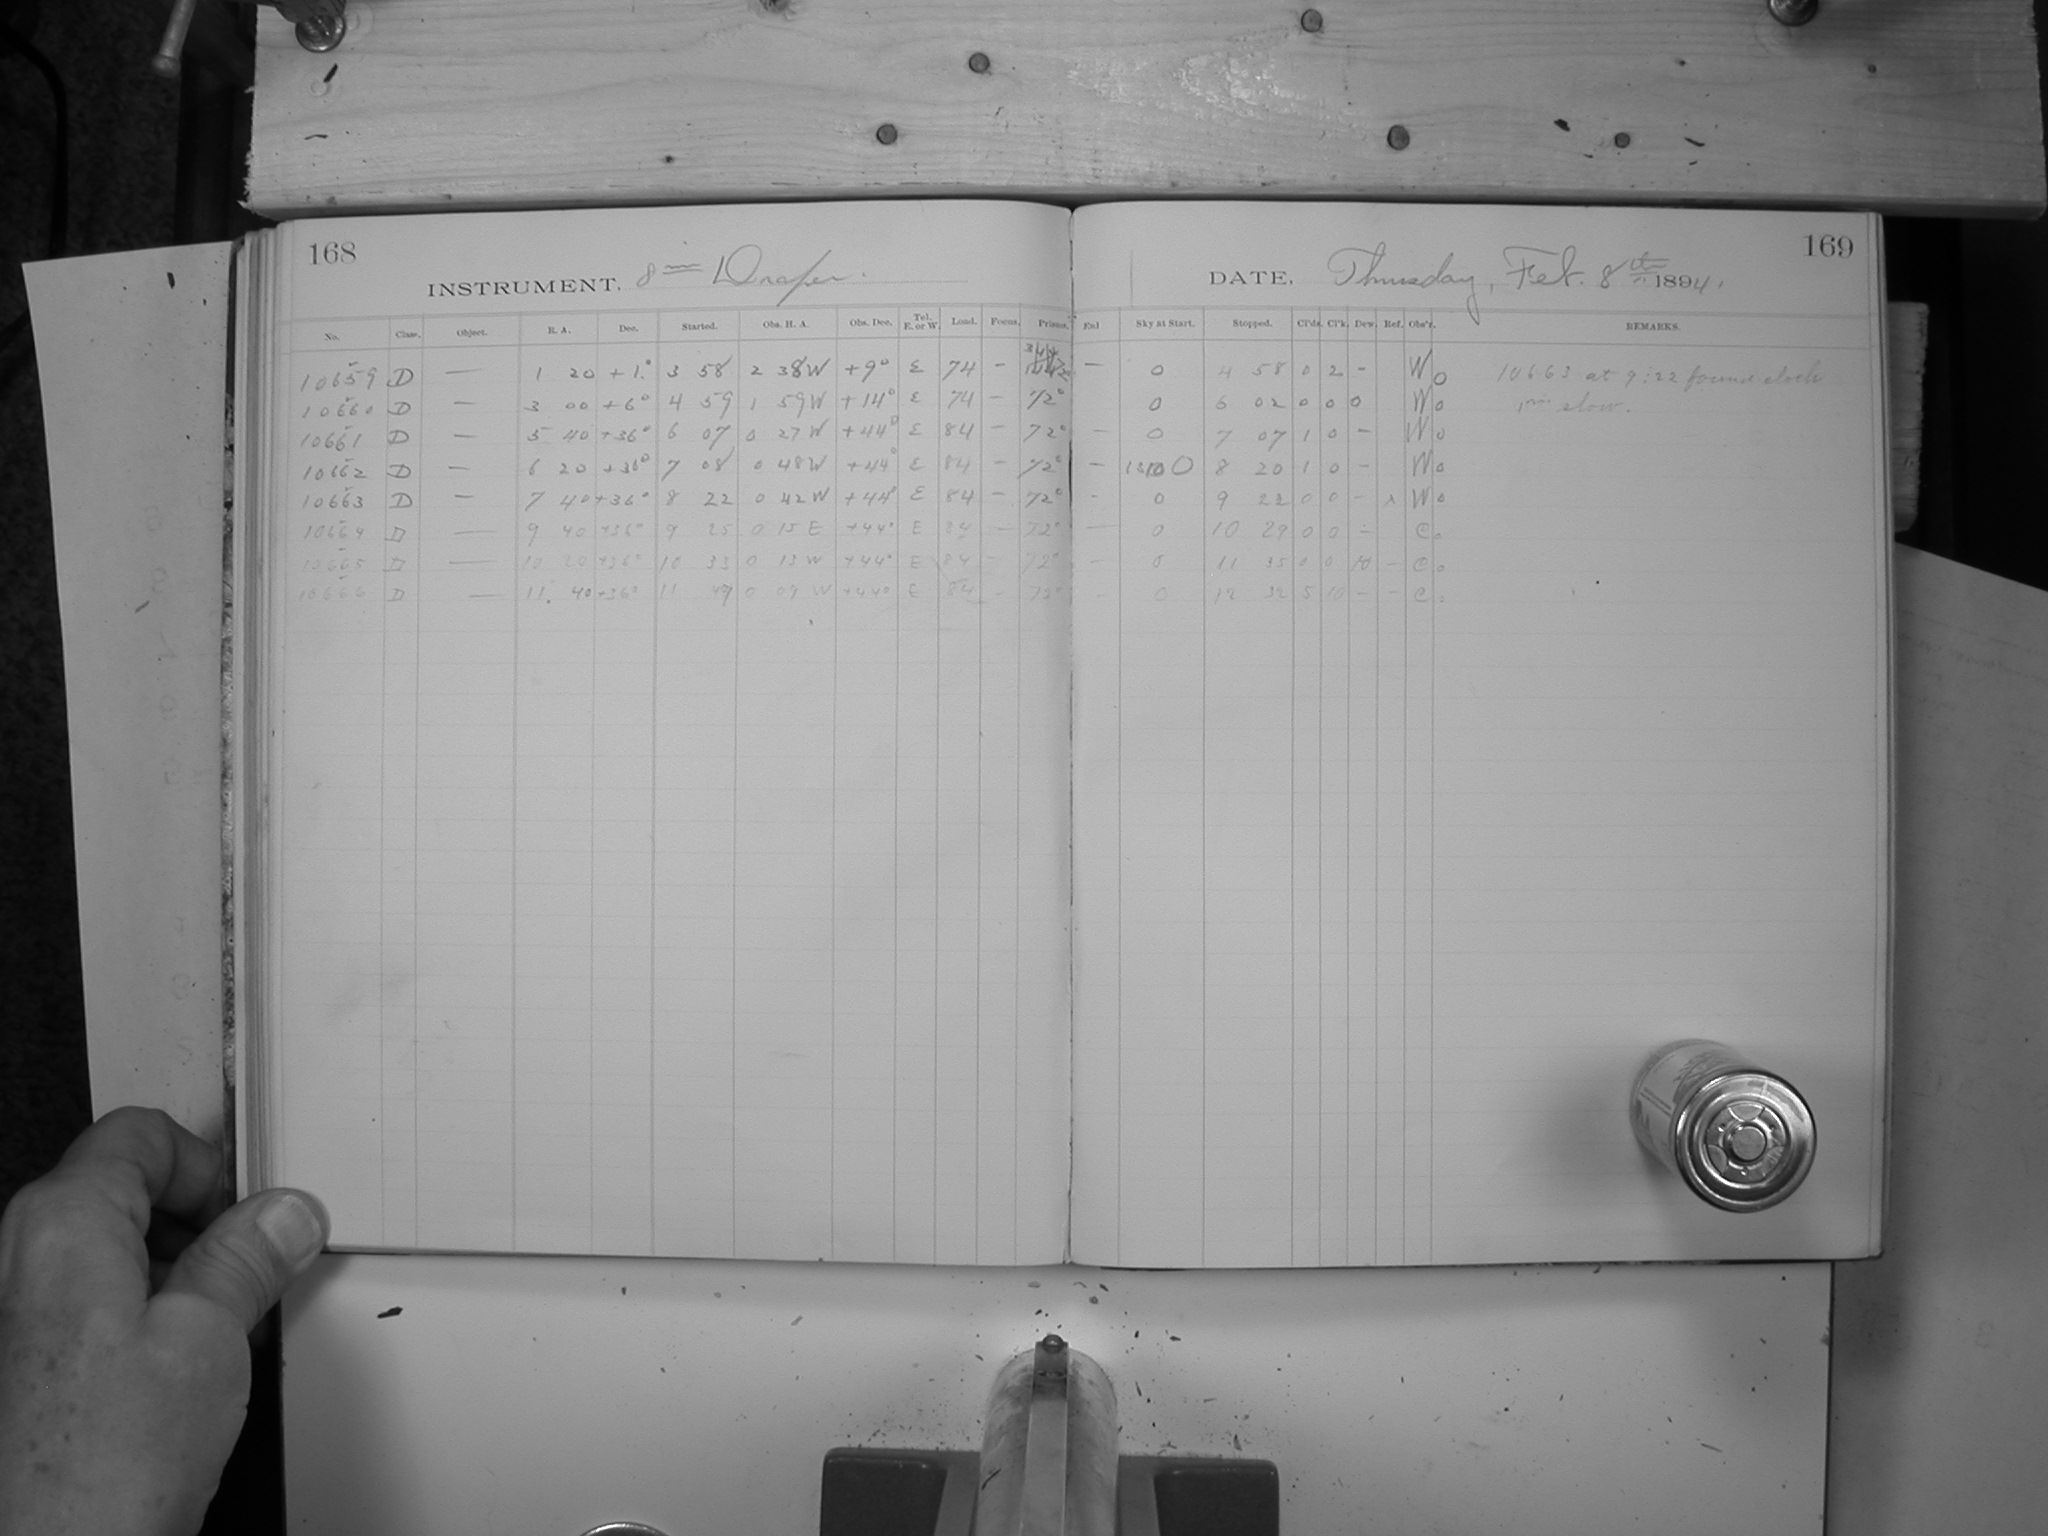 168
INSTRUMENT, 8 in Draper.
No. Class. Object. R. A. Dec. Started. Obs. H. A. Obs. Dec. Tel. E. or W. Load. Focus. Prisms.
10659 D — 1 20 +1° 3 58 2 38 W +9° E 74 –
10660 D — 3 00 +6° 4 59 1 59 W +14° E 74 – 72°
10661 D — 5 40 +36° 6 07 0 27 W +44° E 84 – 72°
10662 D — 6 20 +36° 7 08 0 48 W +44° E 84 – 72°
10663 D — 7 40 +36° 8 22 0 42 W +44° E 84 – 72°
10664 D — 9 40 +36° 9 25 0 15 E +44° E 84 — 72°
10665 D — 10 20 +36° 10 33 0 13 W +44° E 84 – 72°
10666 D — 11 40 +36° 11 49 0 09 W +44° E 84 – 72°
169
DATE, Thursday, Feb. 8th 1894.
Enl Sky at Start. Stopped. Cl'ds. Cl'k. Dew. Ref. Obs'r. REMARKS.
— 0 4 58 0 2 – W o 10663 at 9:22 found clock
0 6 02 0 0 0 W o 1 min slow.
— 0 7 07 1 0 – W o
— 0 8 20 1 0 – W o
– 0 9 22 0 0 – x W o
— 0 10 29 0 0 – C o
– 0 11 35 0 0 10 – C o
– 0 12 32 5 10 – – C o